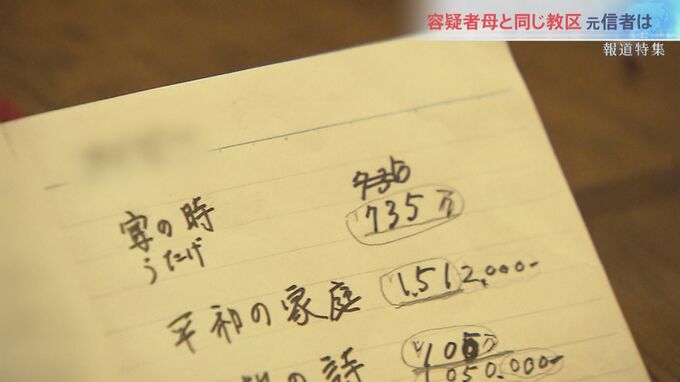 容疑者母と同じ教区 元信者は
報道特集
735
宴の時 735万
うたげ
平和の家庭 1,512,000-
の詩 105万
1050,000-